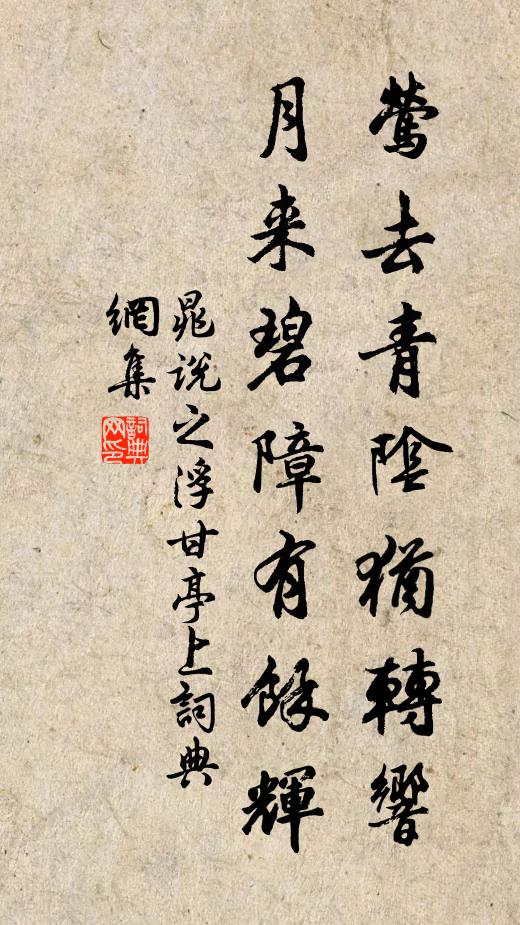 鶯去青陰猶轉響
月来碧障有餘輝
晁説之浮甘亭上詞典
網集
詞典
网印